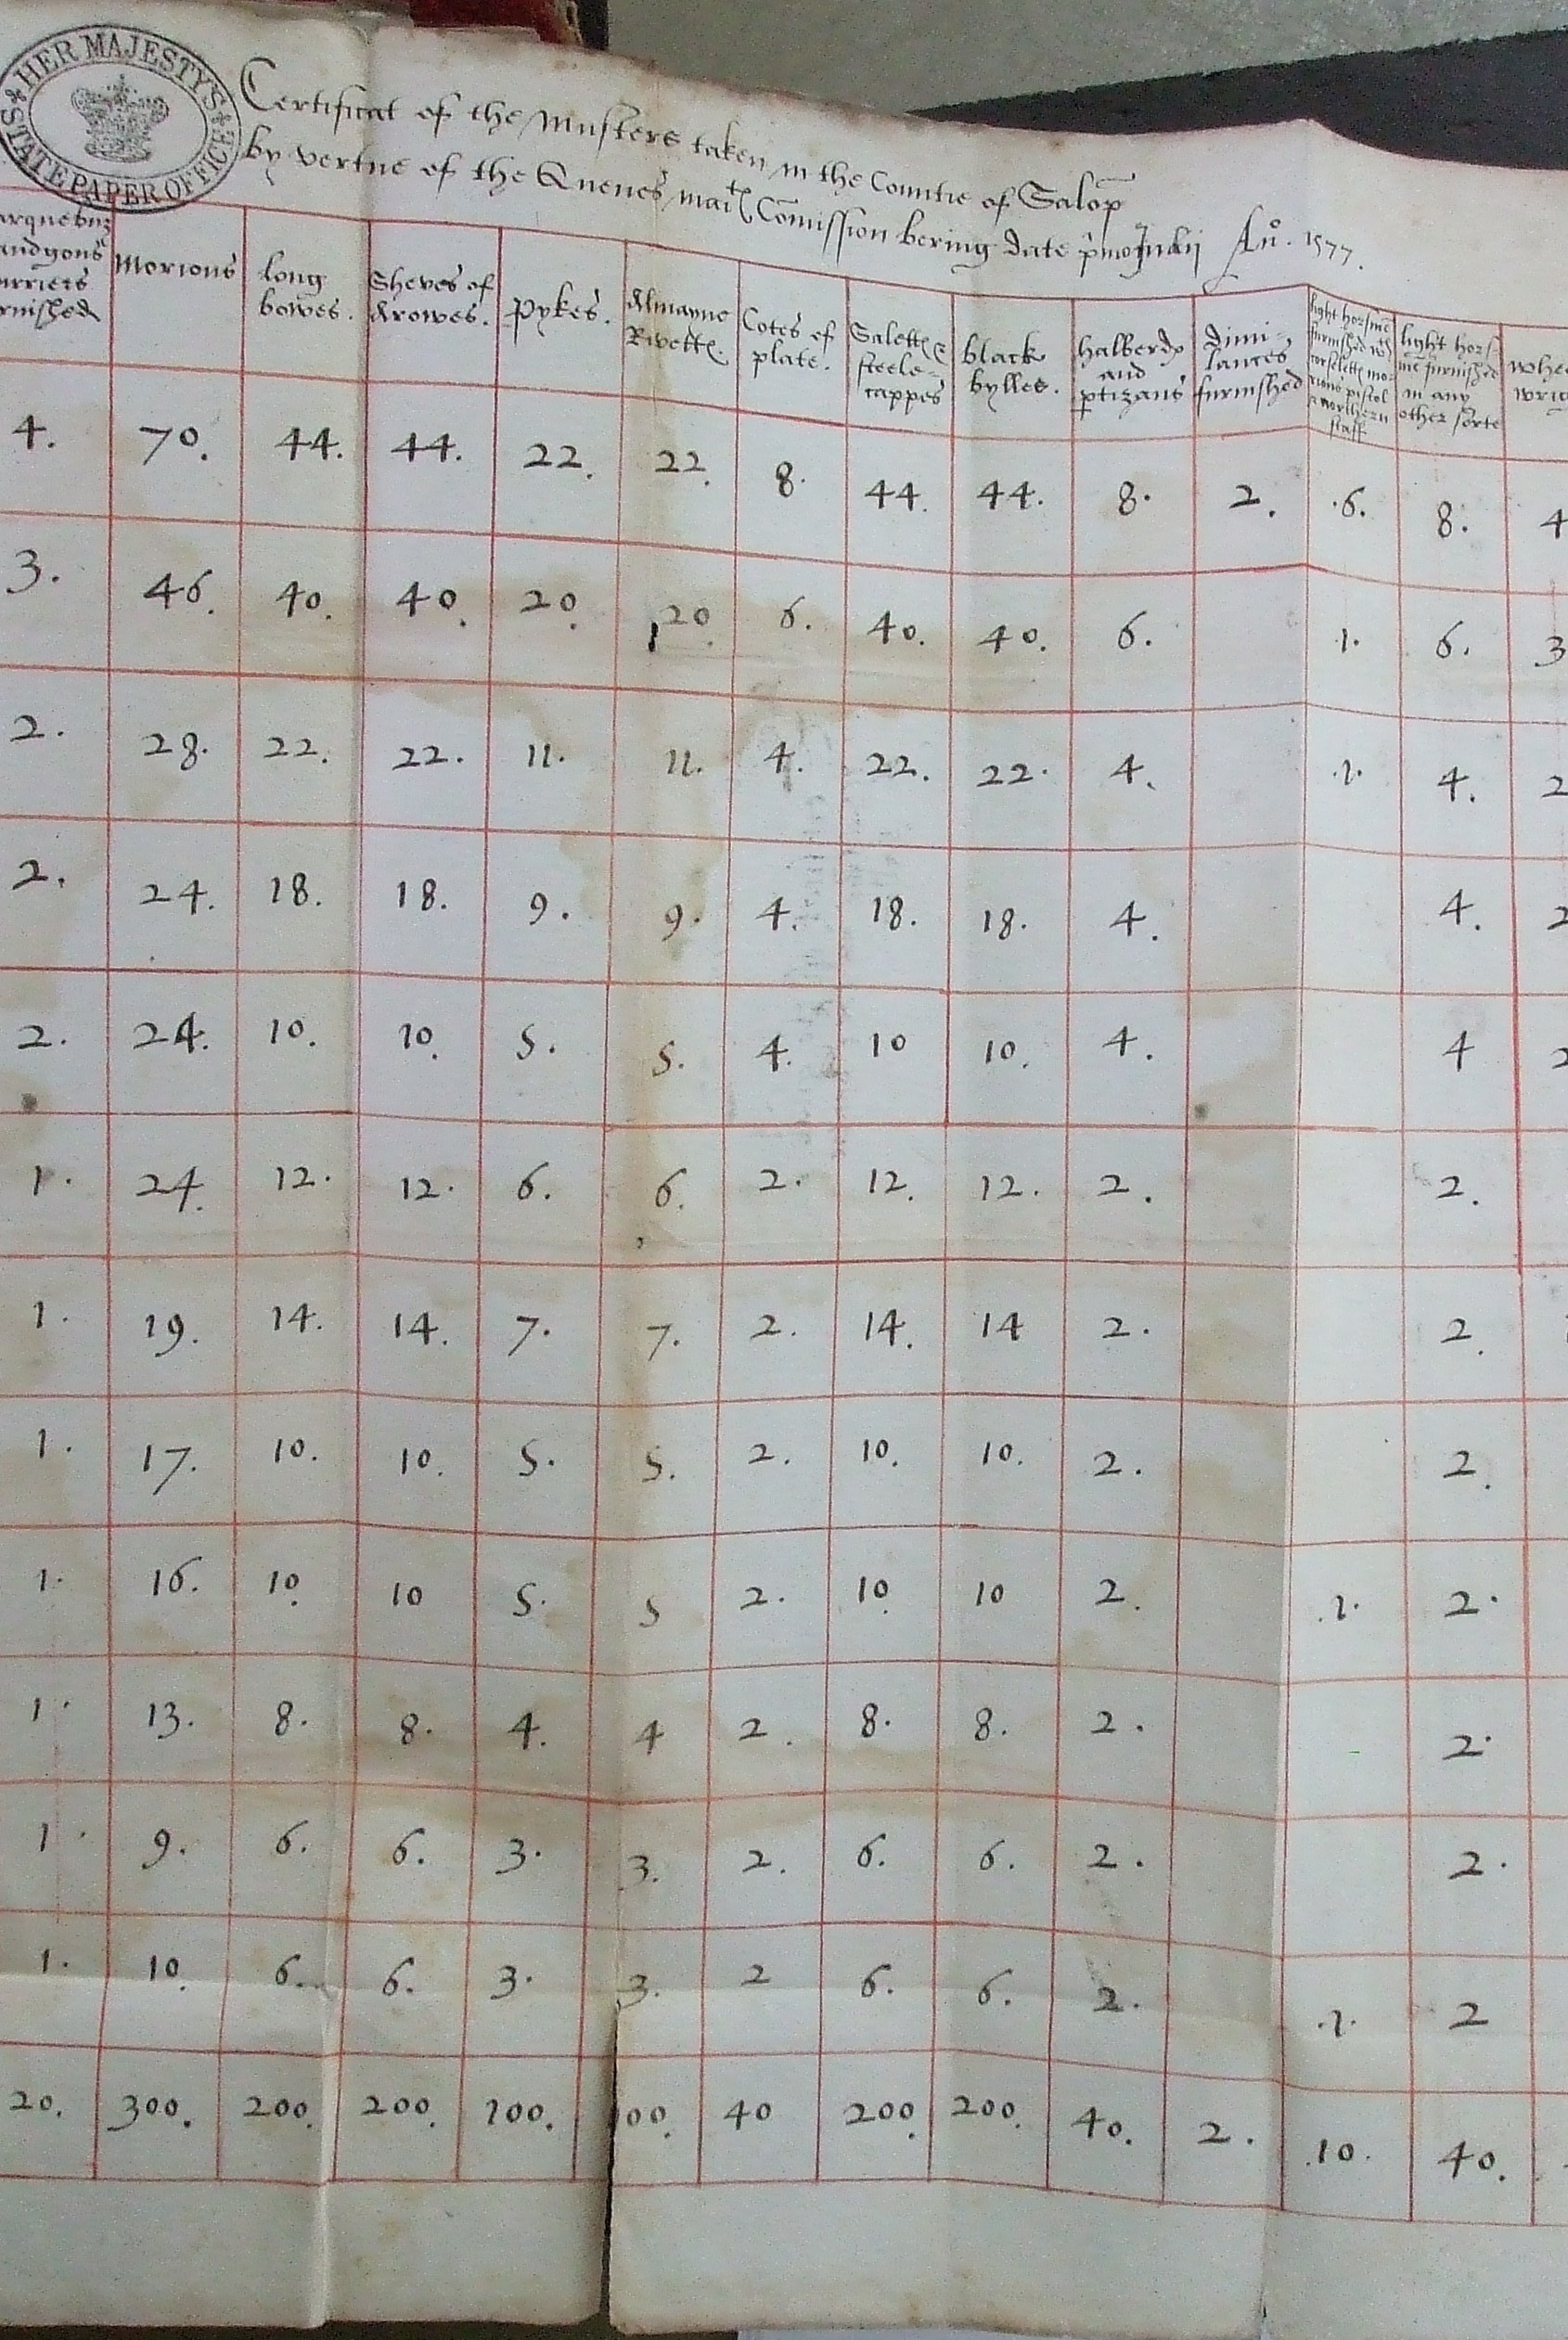 HER MAJESTY'S STATE PAPER OFFICE
Certificat of the Musters taken in the Countie of Salop
by vertue of the Quenes maitς Comission bering date pmo Julii Ano. 1577.
Morions
long
bowes.
Sheves of
Arowes.
Pykes.
Almayne
Rivettς.
Cotes of
plate.
Salettς &
steele-
cappes
black
bylles.
halberdς
and
ptizans
Dimi-
lances
furnished
light horsme
furnished wth
corselettς mo-
rions pistol
& northern
staff
light hors-
me furnished
in any
other sorte
4. 70. 44. 44. 22. 22. 8. 44. 44. 8. 2. .6. 8. 4
3. 46. 40. 40. 20. 20. 6. 40. 40. 6. .1. 6. 3
2. 28. 22. 22. 11. 11. 4. 22. 22. 4. .1. 4. 2
2. 24. 18. 18. 9. 9. 4. 18. 18. 4. 4. 2
2. 24. 10. 10. 5. 5. 4. 10 10. 4. 4 2
1. 24. 12. 12. 6. 6. 2. 12. 12. 2. 2.
1. 19. 14. 14. 7. 7. 2. 14. 14 2. 2.
1. 17. 10. 10. 5. 5. 2. 10. 10. 2. 2.
1. 16. 10. 10 5. 5 2. 10. 10 2. .1. 2.
1. 13. 8. 8. 4. 4 2. 8. 8. 2. 2.
1. 9. 6. 6. 3. 3. 2. 6. 6. 2. 2.
1. 10. 6. 6. 3. 3. 2 6. 6. 2. .1. 2
20. 300. 200. 200. 100. 00. 40 200. 200. 40. 2. .10. 40.